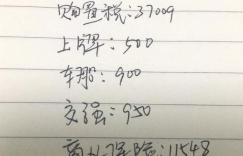 购置税：37009
上牌：500
车船：900
交强：950
商业保险：11548